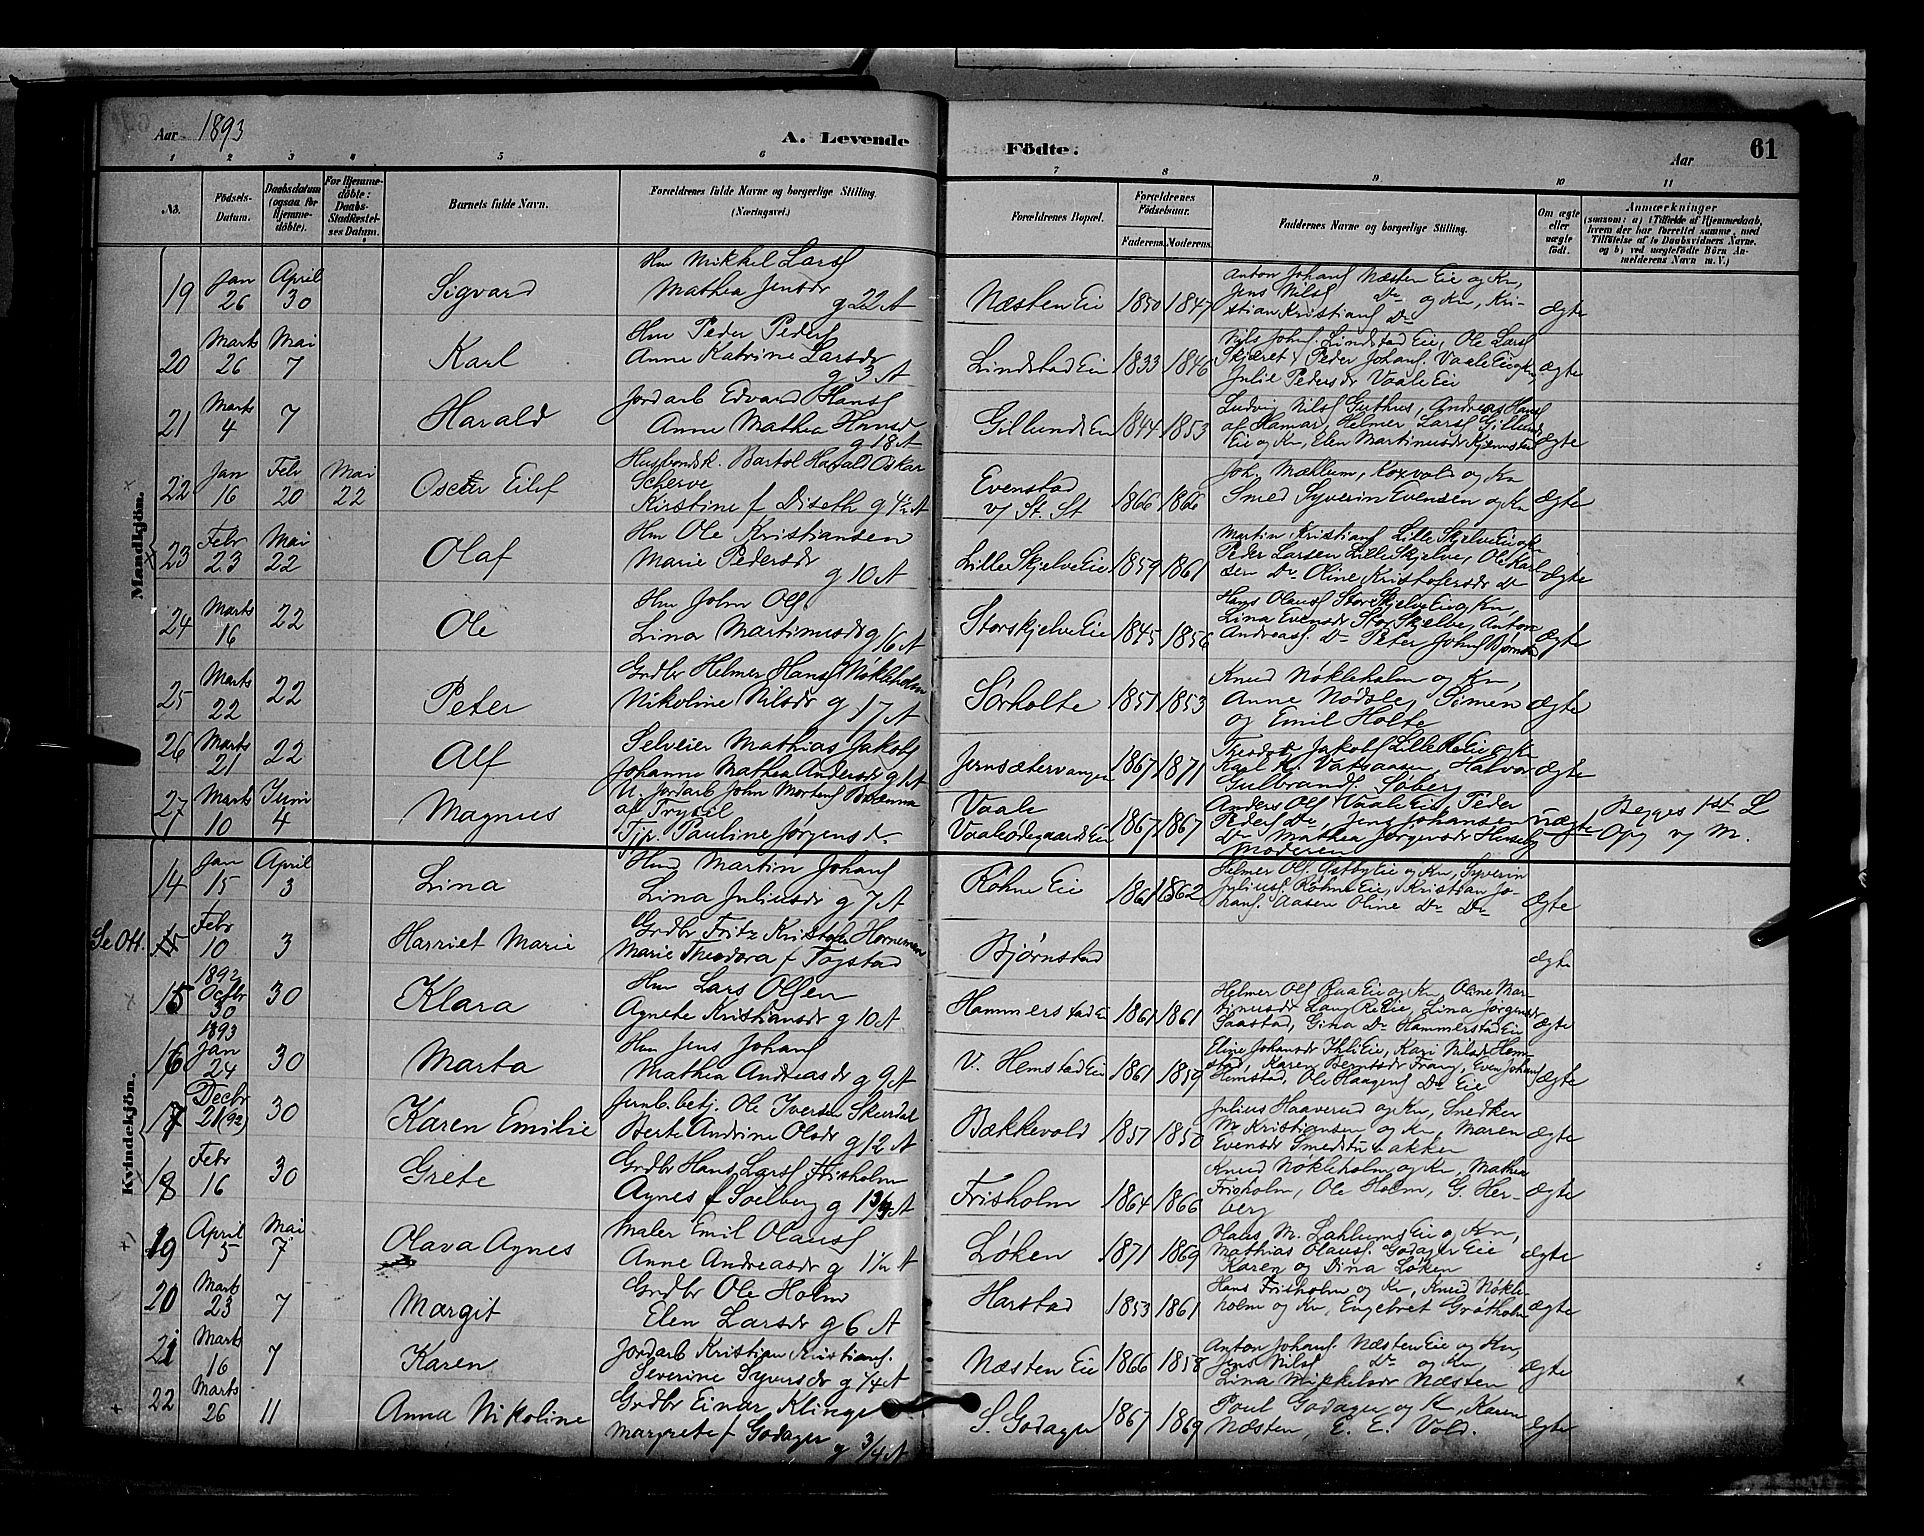 Aar 1893
A. Levende
Födte.
Aar
61
1 2 3 4 5 6 7 8 9 10 11
No.
Födsels-Datum.
Daabsdatum (ogsaa for Hjemme-döbte).
For Hjemme-döbte: Daabs-Stadfæstel-ses Datum.
Barnets fulde Navn.
Forældrenes fulde Navne og borgerlige Stilling. (Næringsvei.)
Forældrenes Bopæl.
Forældrenes Födselsaar.
Faderens. Moderens.
Faddernes Navne og borgerlige Stilling.
Om ægte eller uægte födt.
Anmærkninger
(saasom: a) i Tilfælde af Hjemmedaab, hvem der har forrettet samme, med Tilföielse af to Daabsvidners Navne, og b) ved uægtefödte Börn An-melderens Navn m. V.)
Mandkjön.
19 Jan 26 April 30 Sigvard Hm Mikkel Lars Mathea Jensdr g 22 A Næsten Eie 1850 1847 Anton Johans Næsten Eie og Kn, Jens Nils Do og Kn, Kri-stian Kristians Do ægte
20 Marts 26 Mai 7 Karl Hm Peder Peders Anne Katrine Larsdr g 3 A Lindstad Eie 1833 1846 Nils Johs. Lindstad Eie, Ole Lars Skjæret, Peder Johans. Vaale Eie Julie Pedersdr Vaale Eie ægte
21 Marts 4 7 Harald Jordarb Edvard Hans Anne Mathea Hansdr g 18 A Gillund Eie 1844 1853 Ludvig Nils Guthus, Andreas Hans af Hamar, Helmer Lars Gillund Eie og Kn, Elen Martinusdr Kjemstad ægte
22 Jan 16 Febr 20 Mai 22 Oscar Eilef Husbondsk. Bartol Harald Oskar Scherve Kirstine f Diseth g 4½ A Evenstad v/ St. St 1866 1866 Joh. Mæhlum, Koxvold og Kn Smed Syverin Evensen og Kn ægte
23 Febr 23 Mai 22 Olaf Hm Ole Kristiansen Marie Pedersdr g 10 A Lille Skjelve Eie 1859 1861 Martin Kristians Lille Skjelve Eie Peder Larsen Lille Skjelve, Ole Karl-sen Do Oline Kristofersdr Do ægte
24 Marts 16 22 Ole Hm John Ols. Lina Martinusdr g 16 A Storskjelve Eie 1845 1856 Hans Olaus Storskjelve Eie og Kn, Lina Evensdr Storskjelve, Anton Andreas. Do Peter Johs Bjørnstad ægte
25 Marts 22 22 Peter Grdbr Helmer Hans Nökleholm Nikoline Nilsdr g 17 A Sörholte 1851 1853 Knud Nökleholm og Kn, Anne Nodsle, Simen og Emil Holte ægte
26 Marts 21 22 Alf Selveier Mathias Jakobs Johanne Mathea Andersdr g 1 A Jernsætervangen 1867 1871 Theodor Jakobs Lille Eie og K Karl K. Vatsaasen, Halvor Gulbrands. Soberg ægte
27 Marts 10 Juni 4 Magnus U. Jordarb John Mortens Brænna af Trysil Tjp Pauline Jørgensdr Vaale Vaaleødegaard Eie 1867 1867 Anders Ols Vaale Eie, Peder Peders Do, Jens Johansen Do Mathea Jørgensdr Moderen uægte Begges 1st L Opg v/ M.
Kvindekjön.
14 Jan 15 April 3 Lina Hm Martin Johans Lina Juliusdr g 7 A Röhne Eie 1861 1862 Helmer Ols. Østby Eie og Kn, Syverin Julius. Röhne Eie, Kristian Jo-hans. Aasen Oline Do Do ægte
Se Ott. 15 Febr 10 3 Harriet Marie Grdbr Fritz Kristofer Hornemann Marie Theodora f Togstad Bjørnstad ægte
15 1892 Octbr 30 30 Klara Hm Lars Olsen Agnete Kristiansdr g 10 A Hammerstad Eie 1861 1861 Helmer Ols Eie og Kn Oline Mar-tinusdr Lina Jørgensdr Saastad, Gina Do Hammerstad Eie ægte
16 1893 Jan 24 30 Marta Hm Jens Johans Mathea Andreasdr g 9 A V. Hemstad Eie 1861 1859 Eline Johansdr Ihle Eie, Kari Nilsdr Hem-stad, Karen Berntsdr Frang, Even Johans Hemstad, Ole Haagens Do Eie ægte
17 Decbr 21 (92) 30 Karen Emilie Jernb. betj. Ole Iversen Skurdal Berte Andrine Olsdr g 12 A Bækkevold 1857 1850 Julius Haaverud og Kn, Snedker M Kristiansen og Kn, Maren Evensdr Smedstubakken ægte
18 Febr 16 30 Grete Grdbr Hans Lars Frisholm Agnes f Solberg g 1¾ A Frisholm 1864 1866 Knud Nökleholm og Kn, Mathea Frisholm, Ole Holm, G. Her-berg ægte
19 April 5 Mai 7 Olava Agnes Maler Emil Olaus Anne Andreasdr g 1½ A Løken 1871 1869 Olaus M. Lahlums Eie og Kn, Mathias Olaus. Godager Eie Karen og Dina Løken ægte
20 Marts 23 7 Margit Grdbr Ole Holm Elen Larsdr g 6 A Harstad 1853 1861 Hans Frisholm og Kn, Knud Nökle-holm og Kn, Engebret Grøtholm ægte
21 Marts 16 7 Karen Jordarb Kristian Kristians. Severine Syversdr g ¼ A Næsten Eie 1866 1858 Anton Johans. Næsten Eie og Kn, Jens Nils Do og Kn, Lina Mikkelsdr Næsten ægte
22 Marts 26 11 Anna Nikoline Grdbr Einar Klinge Margrete f Godager g ¾ A S. Godager 1867 1869 Poul Godager og K, Karen Næsten, E. E. Vold. ægte